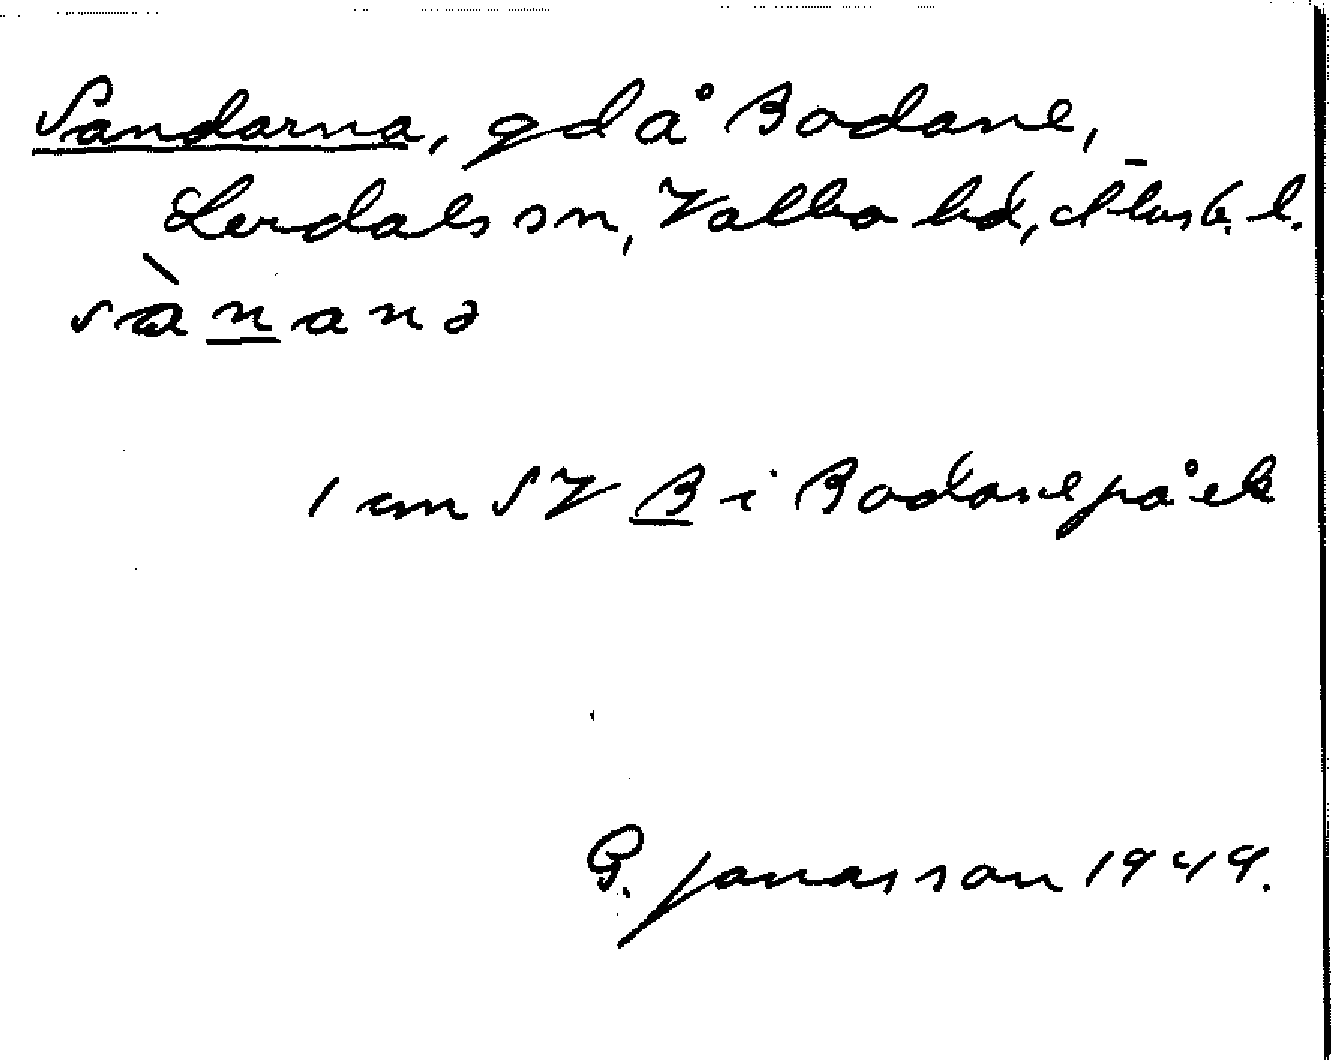 Sandarna, gd å Bodane,
Lerdals sn, Valbo hd, Älvsb. l.
sànanə
1 cm SV B i Bodane på ek
G. Jonasson 1949.